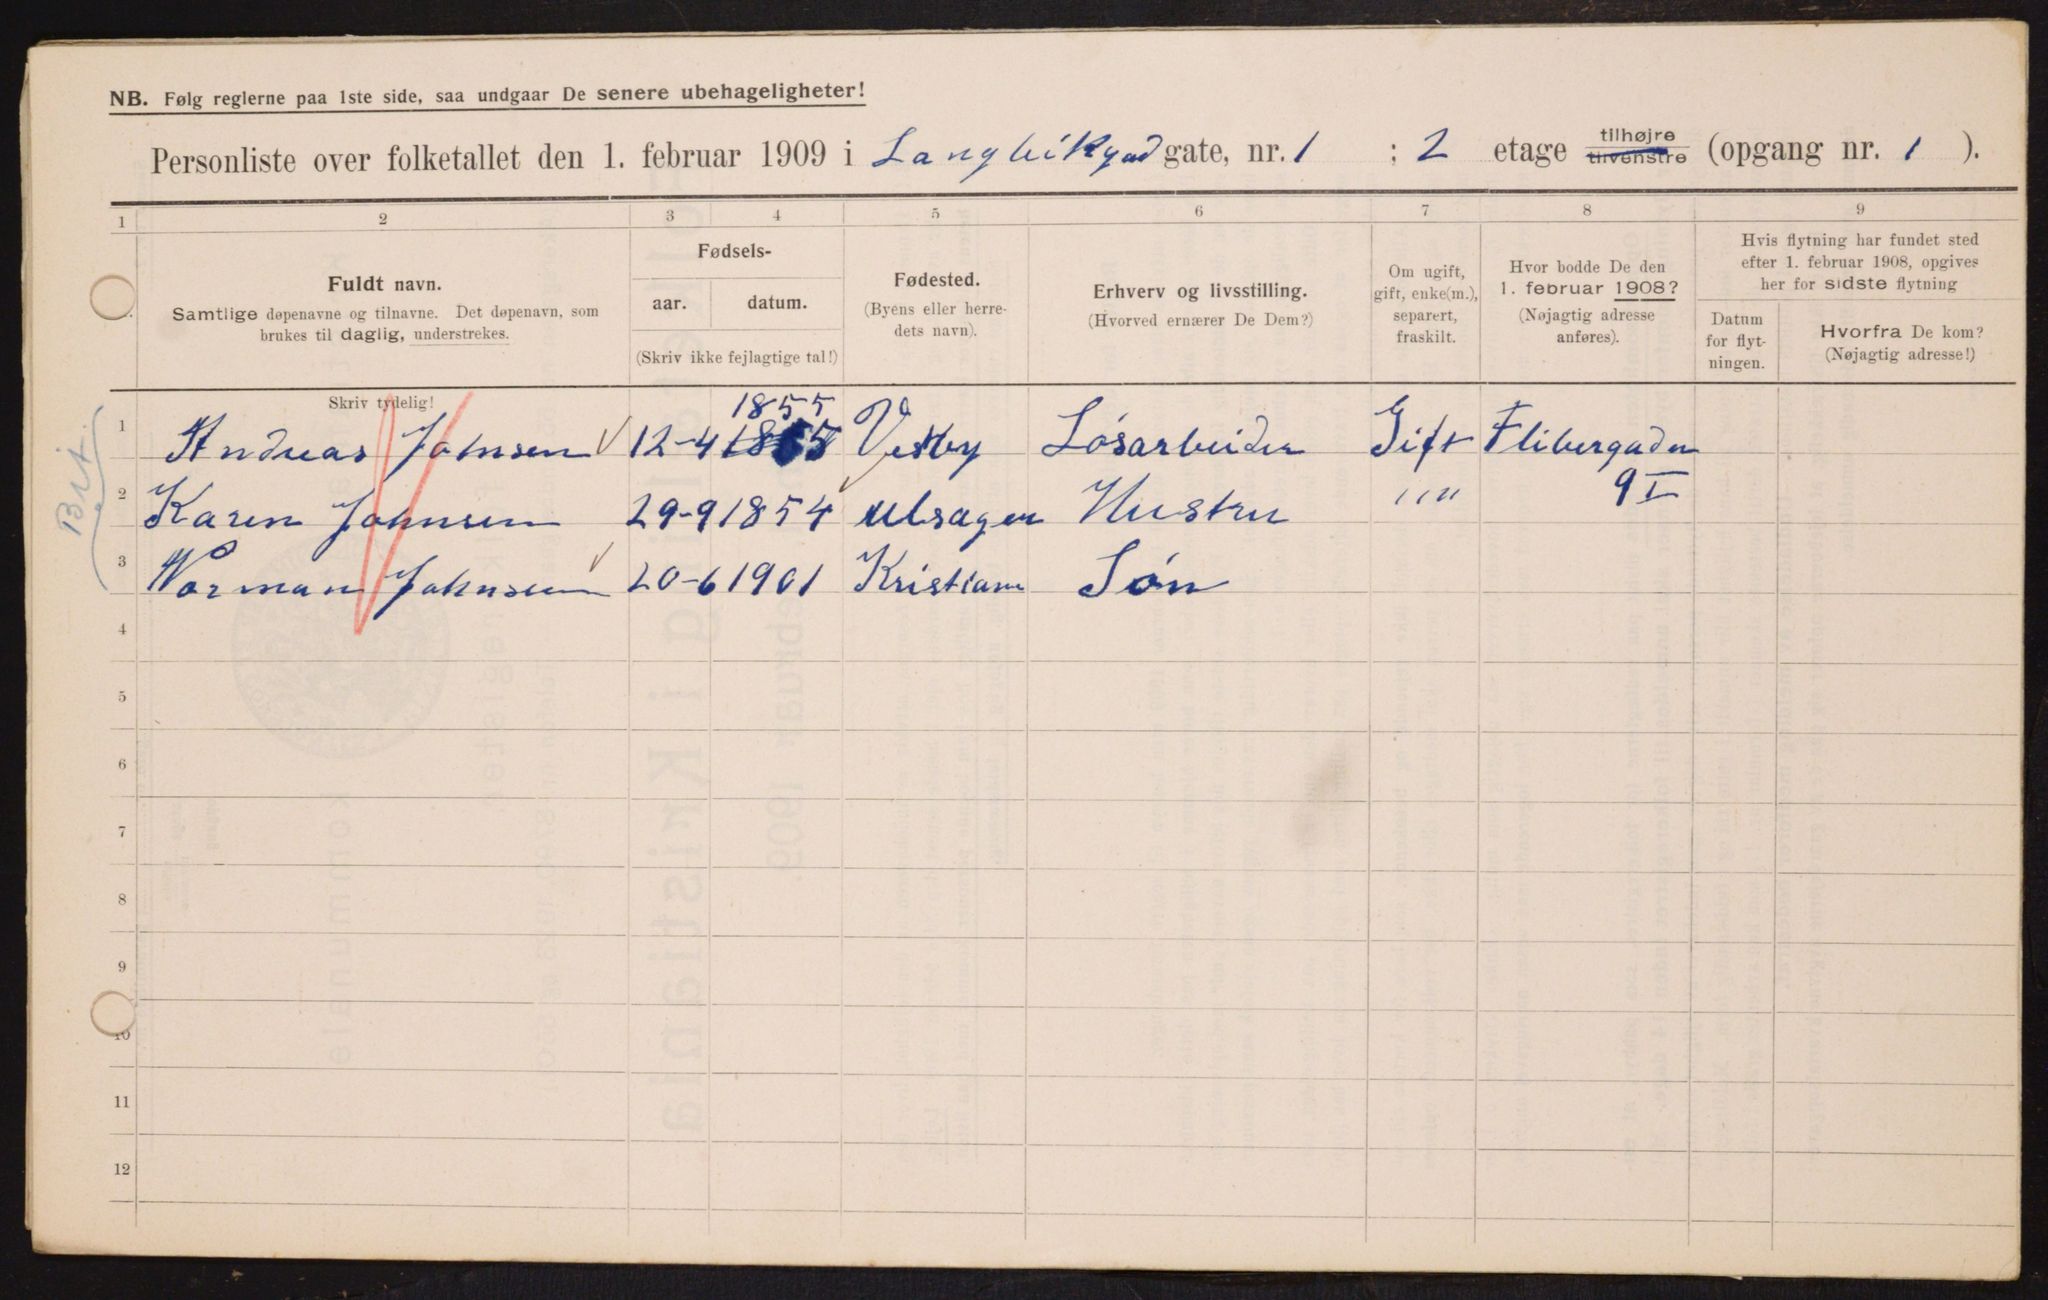 NB. Følg reglerne paa 1ste side, saa undgaar De senere ubehageligheter!
Personliste over folketallet den 1. februar 1909 i Langleikgad gate, nr. 1 ; 2 etage tilhøjre tilvenstre (opgang nr. 1 ).
1 2 3 4 5 6 7 8 9
Fuldt navn.
Samtlige døpenavne og tilnavne. Det døpenavn, som
brukes til daglig, understrekes.
Fødsels-
aar. datum.
(Skriv ikke fejlagtige tal!)
Fødested.
(Byens eller herre-
dets navn).
Erhverv og livsstilling.
(Hvorved ernærer De Dem?)
Om ugift,
gift, enke(m.),
separert,
fraskilt.
Hvor bodde De den
1. februar 1908?
(Nøjagtig adresse
anføres).
Hvis flytning har fundet sted
efter 1. februar 1908, opgives
her for sidste flytning
Datum
for flyt-
ningen.
Hvorfra De kom?
(Nøjagtig adresse!)
Skriv tydelig!
1855
1 Andreas Johnsen 12-4 1855 Vestby Løsarbeider Gift Flibergaden
2 Karen Johnsen 29-9 1854 Ulsagen Hustru "" 9 I
3 Norman Johnsen 20-6 1901 Kristiania Søn
4
5
6
7
8
9
10
11
12